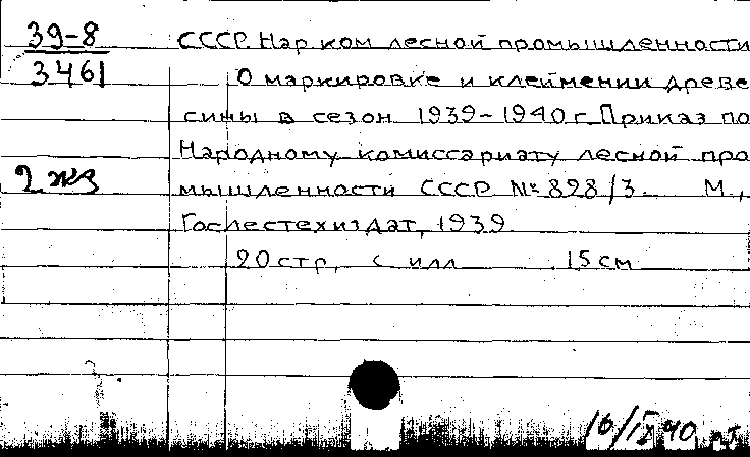 39-8
3461
СССР. Нар. ком. лесной промышленности
О маркировке и клеймении древе
сины в сезон 1939-1940г. Приказ по
Народному комиссариату лесной про
мышленности СССР № 898/3. М.,
Гослестехиздат, 1939.
20 стр., с илл. 15 см
2 жз
16/IX 40